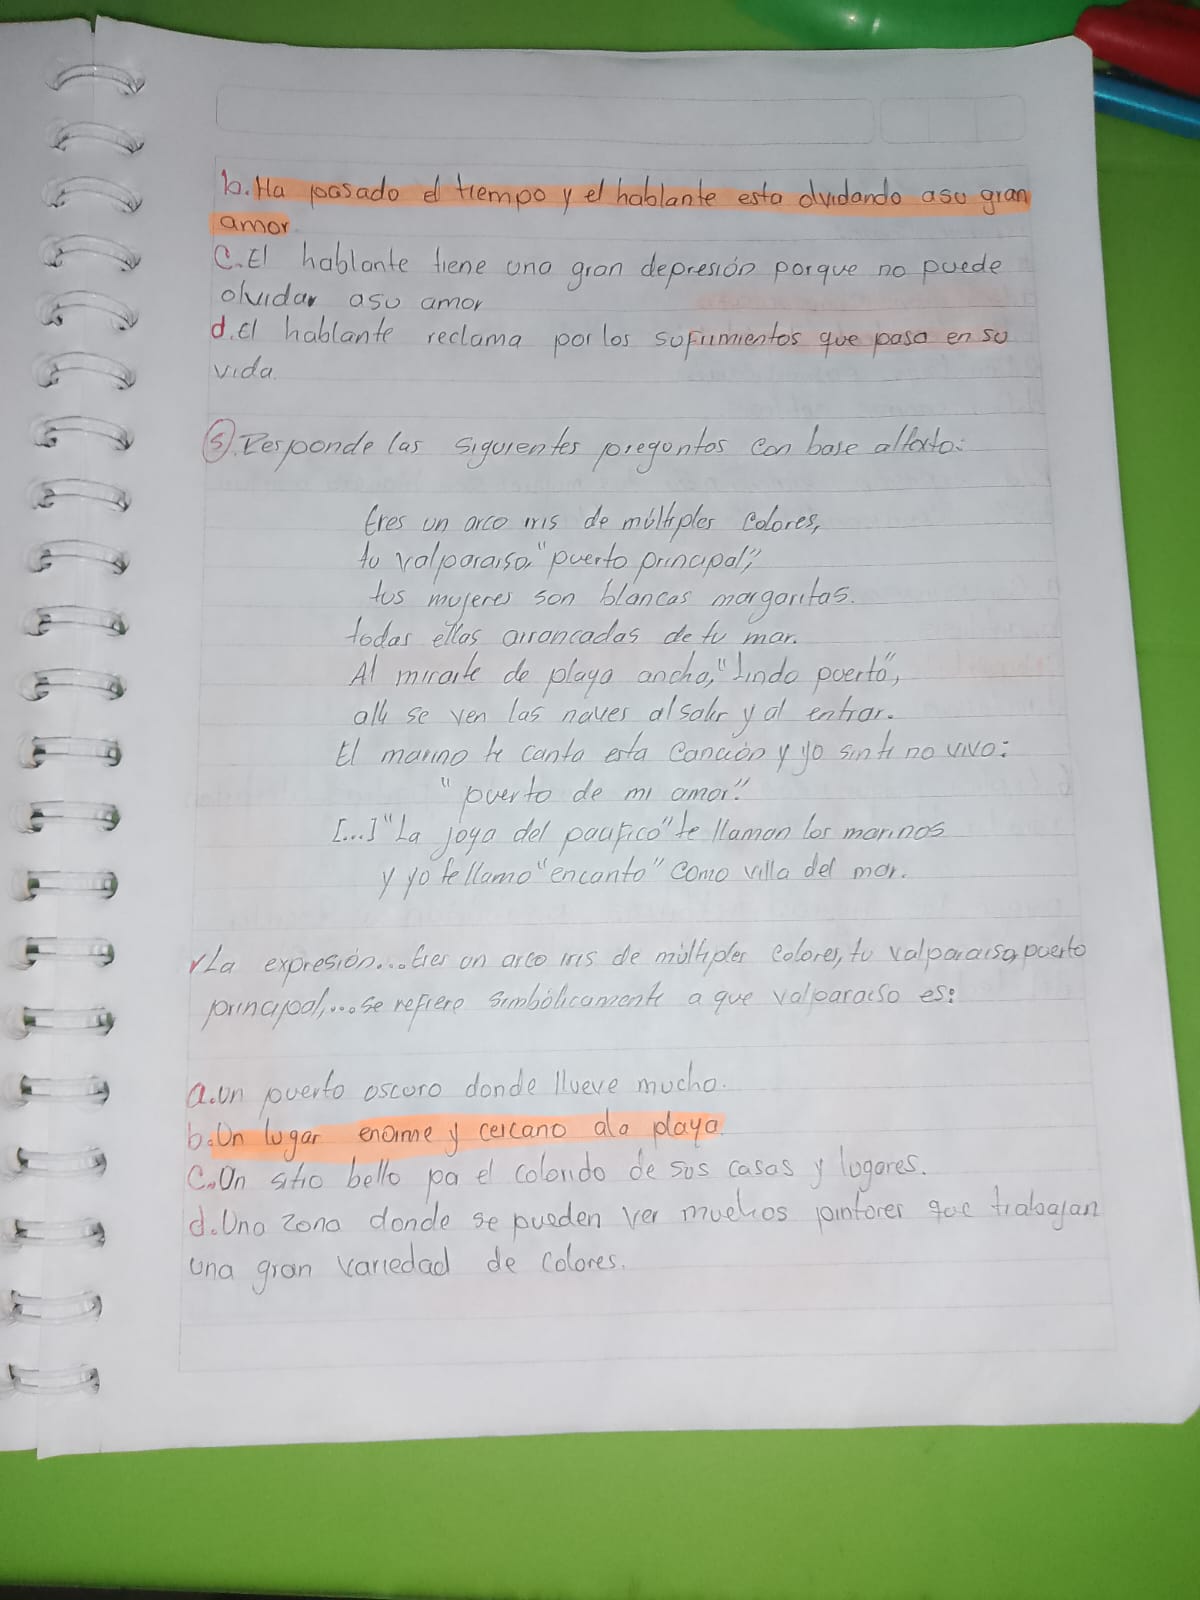 b. Ha pasado el tiempo y el hablante esta olvidando asu gran
amor
C. El hablante tiene una gran depresión porque no puede
olvidar asu amor
d. El hablante reclama por los sufrimientos que pasa en su
vida.
5. Responde las siguientes preguntas con base al texto:
Eres un arco iris de múltiples colores,
tu valparaiso, "puerto principal",
tus mujeres son blancas margaritas.
todas ellas arrancadas de tu mar.
Al mirarte de playa ancha, "lindo puerto",
allí se ven las naves al salir y al entrar.
El marino te canta esta canción y yo sin ti no vivo:
"puerto de mi amor."
[...] "La joya del pacifico" te llaman los marinos
y yo te llamo "encanto" como villa del mar.
La expresión... Eres un arco iris de múltiples colores, tu valparaiso, puerto
principal,... se refiere simbólicamente a que valparaiso es:
a. un puerto oscuro donde llueve mucho.
b. Un lugar enorme y cercano ala playa.
C. Un sitio bello pa el colorido de sus casas y lugares.
d. Una zona donde se pueden ver muchos pintores que trabajan
una gran variedad de colores.